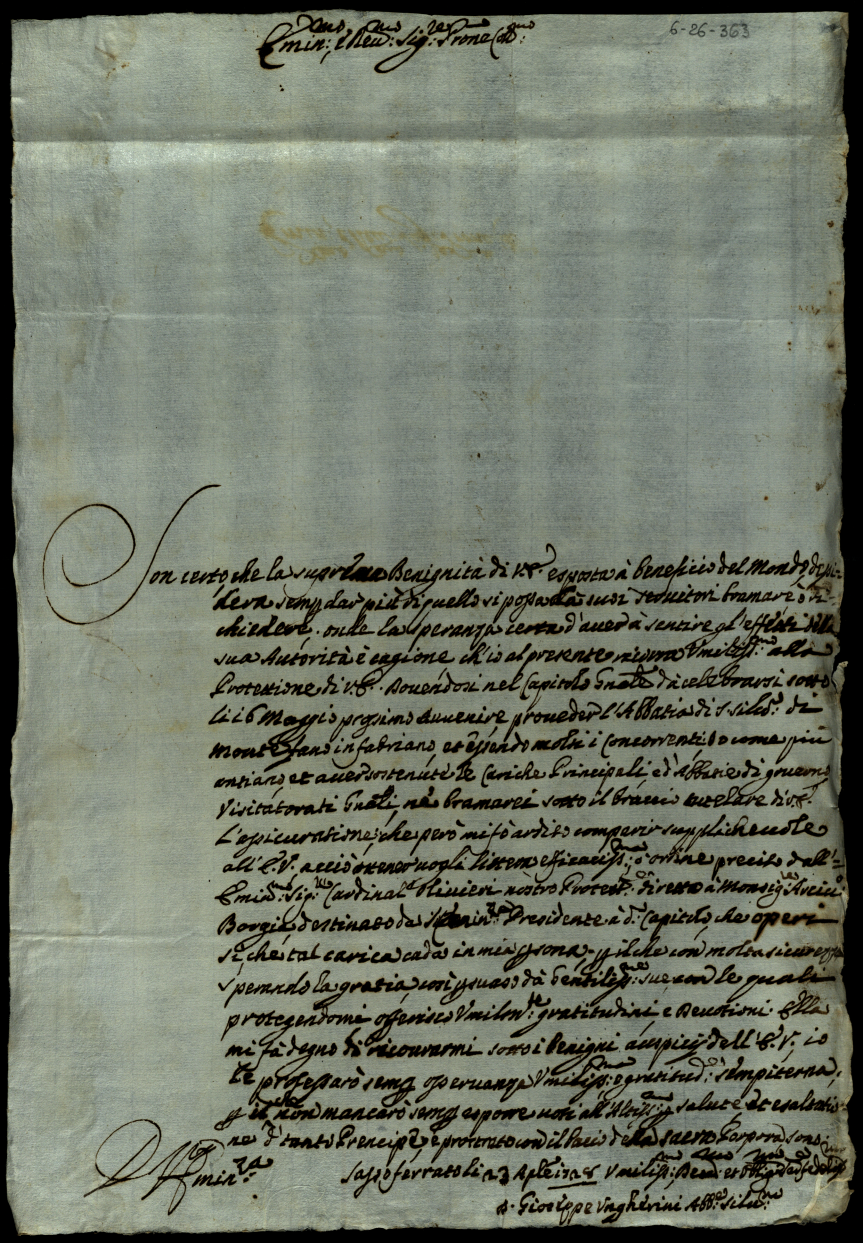 6-26-363
Emin:mo e Reu:mo Sig:re Prone Col:mo
Son certo che la suprema Benignità di V.E. esposta à beneficio del Mondo, desi-
dera semp dar più di quello si possa dà suoi seruitori bramare ò ri-
chiedere. onde la speranza certa d'auer à sentire gl'effetti della
sua Autorità è cagione ch'io al presente Vmiliss:mo alla
Protettione di V.E. Douendosi nel Capitolo Gnale dà celebrarsi sotto
li 16 Maggio prossimo auuenire proueder l'Abbatia di S. Siluo di
Monte fano in fabriano, et essendo molti i Concorrenti Io come più
antiano, et auer sostenute le Cariche Principali, e d'Abbatie di gouerno
Visitatorati Gnali, ne bramarei sotto il braccio tutelare di V.E.
L'assicuratione; che però mi fò ardito comparir suppliche uole
all'E.V. acciò uogli efficaciss:ma ò ordine preciso dall'
Emin:mo Sig: Cardinal Oliuieri nostro Protett:re diretto à Monsig:
Borgia destinato da S. Emin:za Presidente à d:o Capitolo, che operi
sì, che tal carica cada in mia psona. p il che con molta sicurezza
sperando la gratia, così psuaso dà Gentiliss:me sue con le quali
protegendomi offerisco Vmilm:te gratitudini, e Deuotioni. Ella
mi fà degno di ricourarmi sotto i benigni auspicij dell'E.V. io
le professarò semp osseruanza Vmiliss:ma e gratitud:e sempiterna,
p il non mancarò semp esporre uoti all'Altiss:o p salute, et esaltatio-
ne d tanto Prencipe, e prostrato con il bacio della sacra Porpora sono
D V Emin:za
Sassoferrato li 23 Aple Vmiliss:mo Deu:mo et Obblig:mo
D. Gioseppe Vngherini Abb:e Silu:no